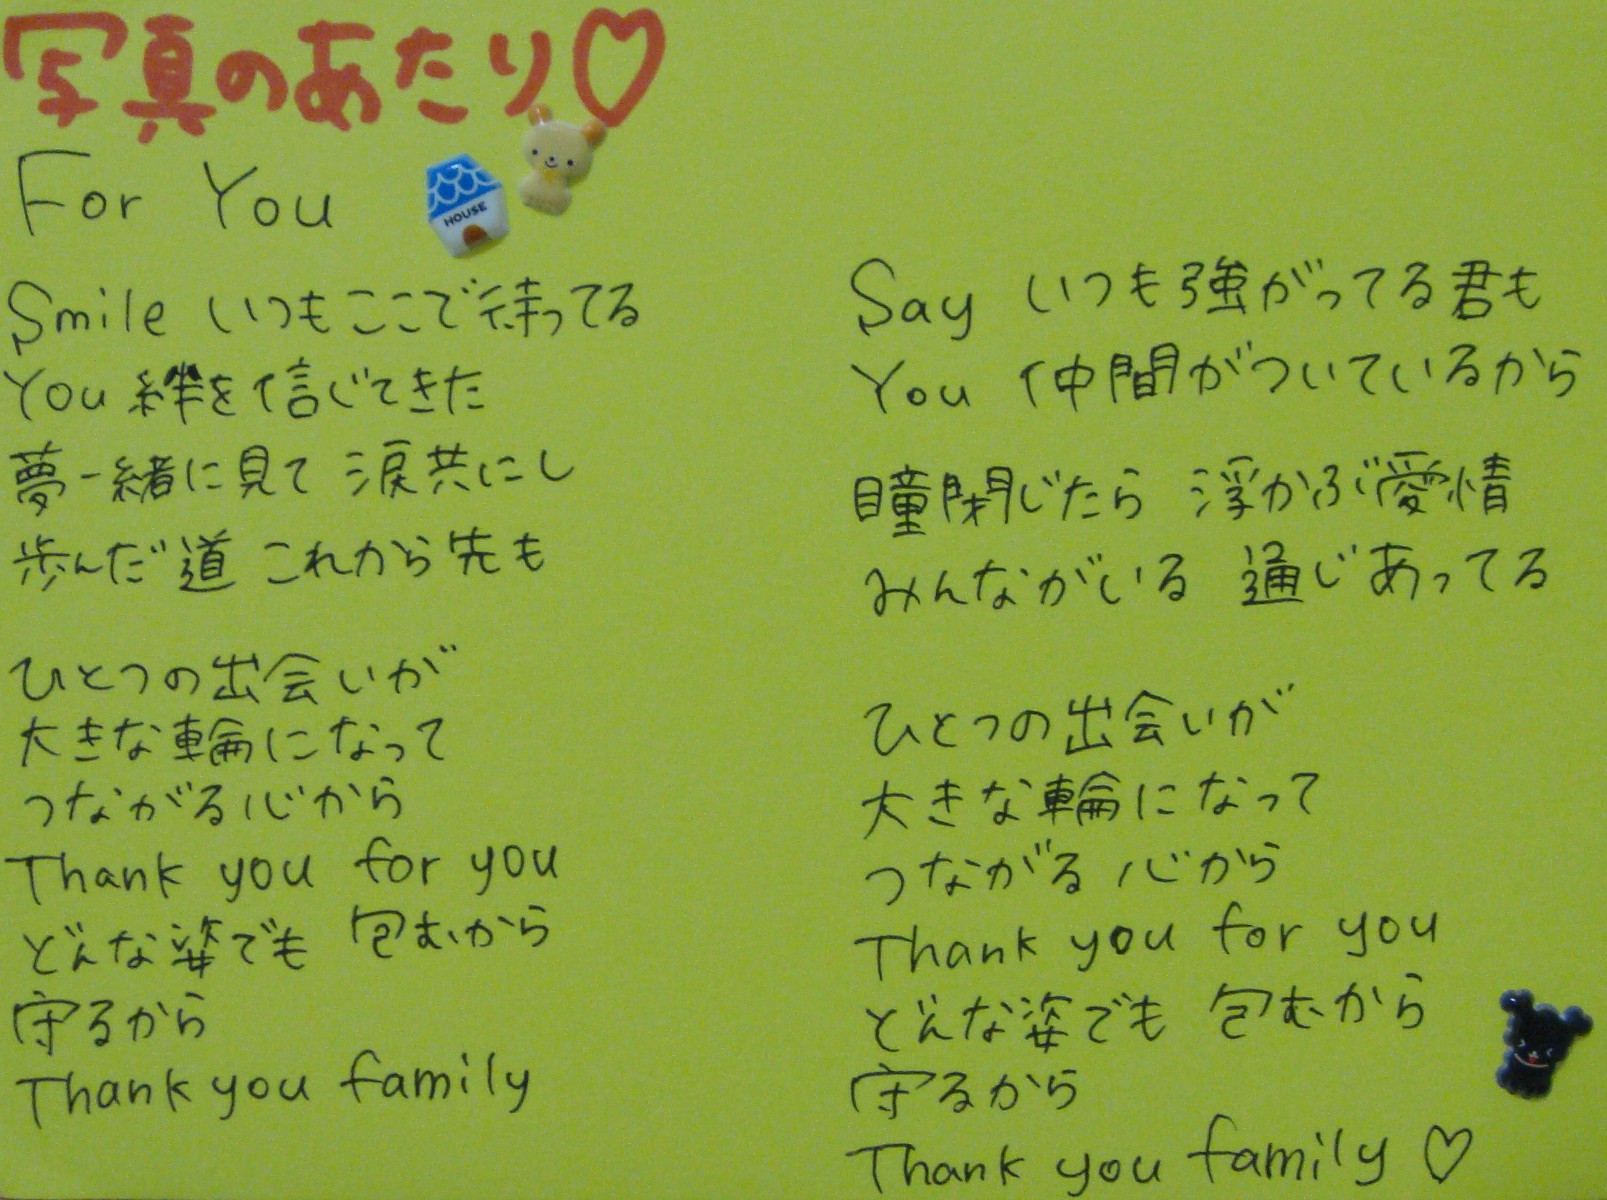 写真のあたり♡
For You
HOUSE
Smile いつもここで待ってる
You 絆を信じてきた
夢一緒に見て 涙共にし
歩んだ道 これから先も
ひとつの出会いが
大きな輪になって
つながる心から
Thank you for you
どんな姿でも 包むから
守るから
Thank you family
Say いつも強がってる君も
You 仲間がついているから
瞳閉じたら 浮かぶ愛情
みんながいる 通じあってる
ひとつの出会いが
大きな輪になって
つながる心から
Thank you for you
どんな姿でも 包むから
守るから
Thank you family ♡